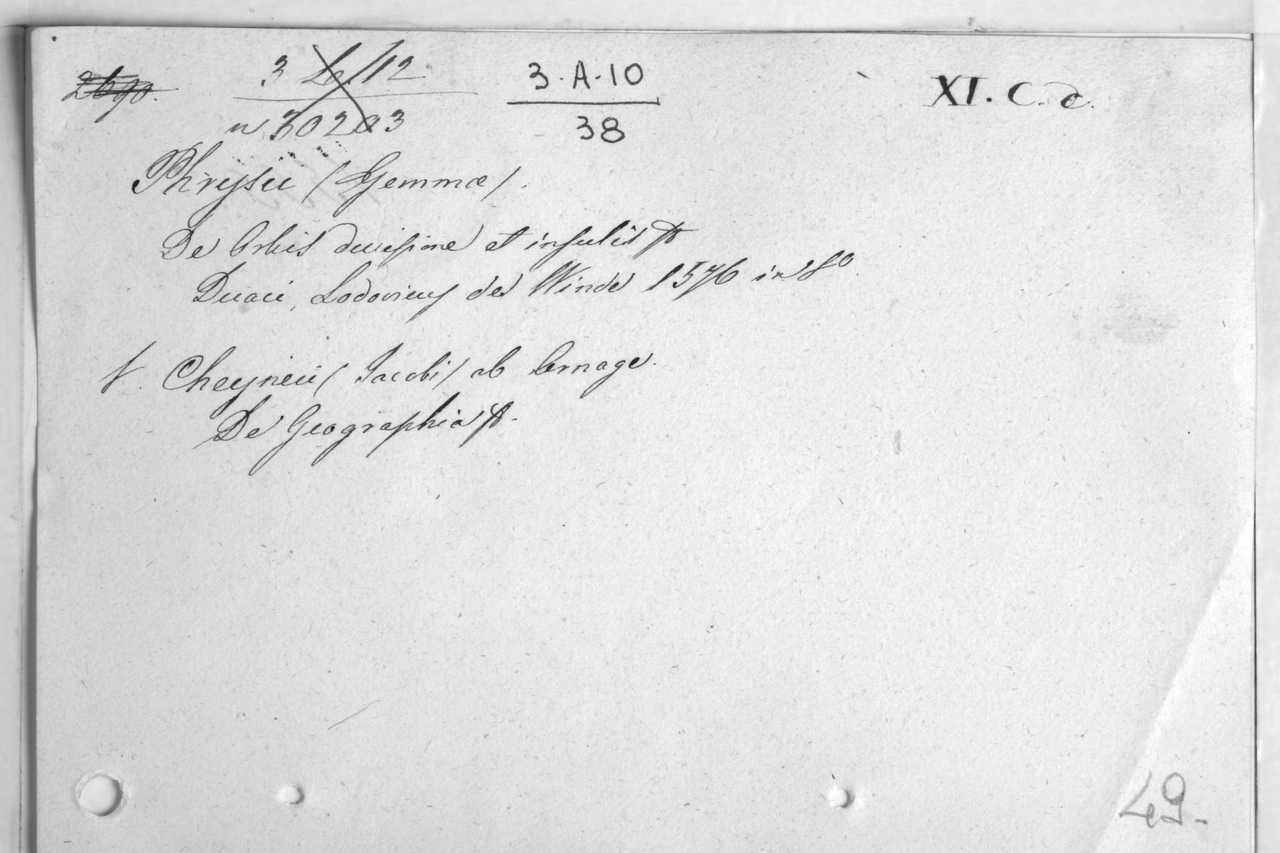 3 Le/12
3·A·10
XI. C. d.
n 30203
38
Phrysii (Gemmæ).
De Orbis divisione et insulis
Duaci, Lodovicus de Winde 1576 in 8o.
V. Cheyneii (Jacobi) ab Arnage.
De Geographia
49.